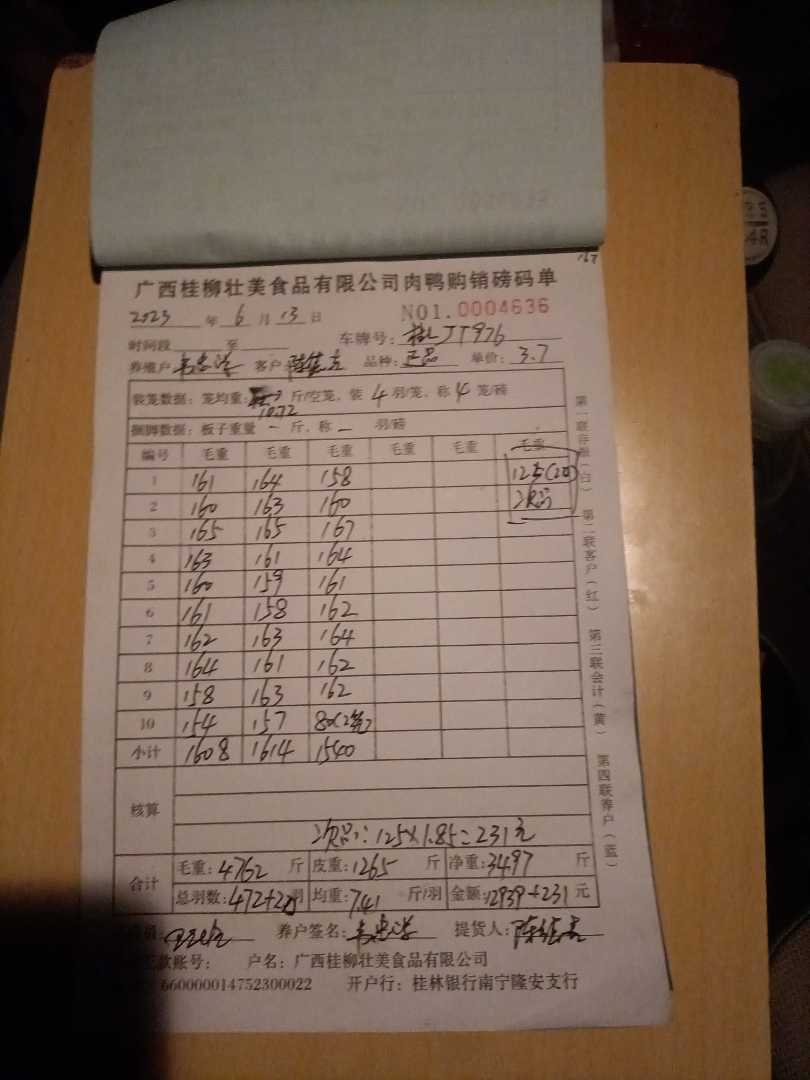 167
广西桂柳壮美食品有限公司肉鸭购销磅码单
2023 年 6 月 13 日 NO1.0004636
时间段 至 车牌号: JT976
养殖户 客户 品种: 正品 单价: 3.7
装笼数据: 笼均重: 10.72 斤/空笼, 装 4 羽/笼, 称 4 笼/磅
捆脚数据: 板子重量 - 斤, 称 - 羽/磅
编号 毛重 毛重 毛重 毛重 毛重 毛重
1 161 164 158 125(20)
2 160 163 160 次品
3 165 165 167
4 163 161 164
5 160 159 161
6 161 158 162
7 162 163 164
8 164 161 162
9 158 163 162
10 154 157 80(2笼)
小计 1608 1614 1540
核算
次品: 125×1.85=231元
合计 毛重: 4762 斤 皮重: 1265 斤 净重: 3497 斤
总羽数: 472+20 羽 均重: 7.41 斤/羽 金额: 12939+231 元
养户签名: 提货人:
款账号: 户名: 广西桂柳壮美食品有限公司
660000014752300022 开户行: 桂林银行南宁隆安支行
第一联存根(白) 第二联客户(红) 第三联会计(黄) 第四联养户(蓝)